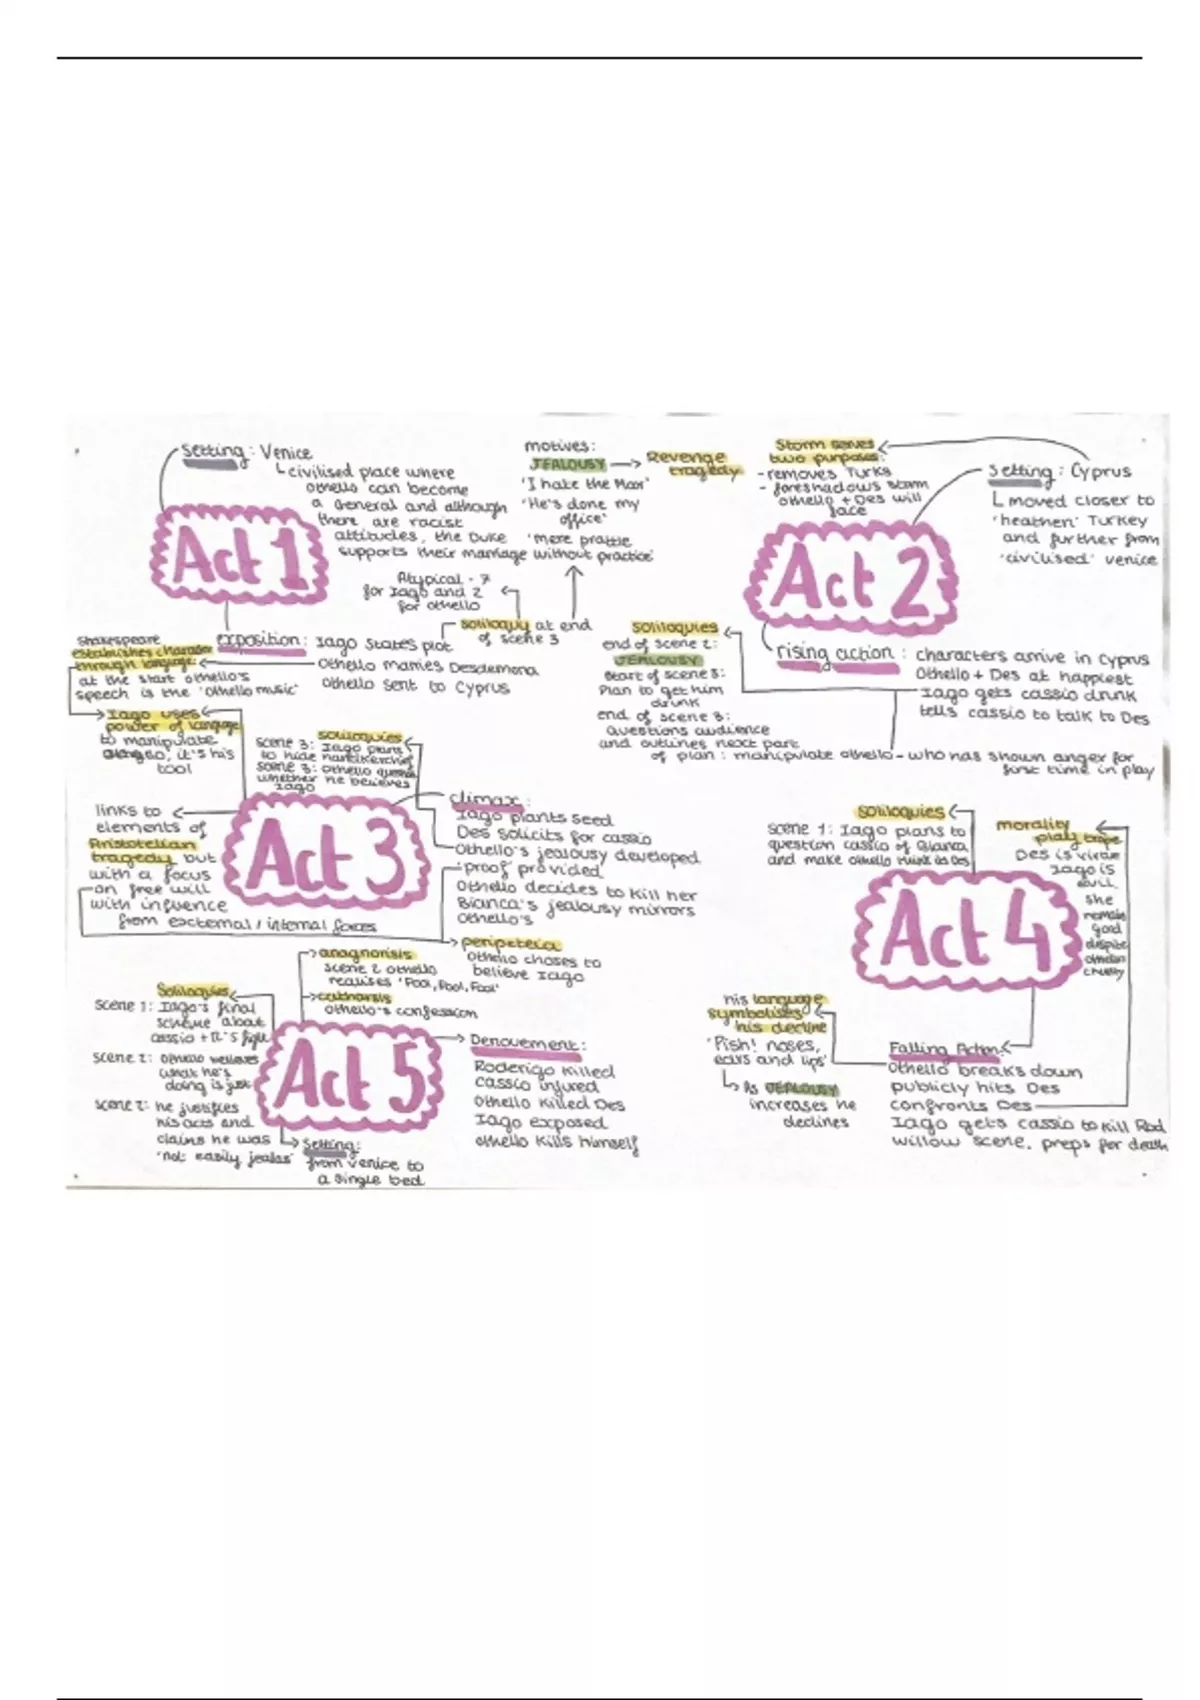 Setting: Venice
civilised place where
Othello can become
a General and although
there are racist
attitudes, the Duke
supports their marriage
motives:
JEALOUSY → Revenge
tragedy
'I hate the Moor'
'He's done my
office'
'mere prattle
without practice'
Act 1
Atypical - 7
for Iago and 2
for Othello
soliloquy at end
of scene 3
exposition: Iago states plot
Othello marries Desdemona
Othello sent to Cyprus
Shakespeare
establishes character
through language:
at the start Othello's
speech is the 'Othello music'
Iago uses
power of language
to manipulate
it's his
tool
Storm serves
two purposes:
- removes Turks
- foreshadows storm
Othello + Des will
face
Setting: Cyprus
moved closer to
'heathen' Turkey
and further from
'civilised' Venice
Act 2
rising action: characters arrive in Cyprus
Othello + Des at happiest
Iago gets Cassio drunk
tells Cassio to talk to Des
soliloquies
end of scene 1:
JEALOUSY
start of scene 3:
Plan to get him
drunk
end of scene 3:
questions audience
and outlines next part
of plan: manipulate Othello - who has shown anger for
first time in play
soliloquies
scene 3: Iago plans
to hide handkerchief
scene 3: Othello
whether he believes
Iago
Act 3
climax:
Iago plants seed
Des solicits for Cassio
Othello's jealousy developed
'proof' provided
Othello decides to kill her
Bianca's jealousy mirrors
Othello's
links to
elements of
Aristotelian
tragedy but
with a focus
on free will
with influence
from external / internal forces
peripeteia
Othello choses to
believe Iago
soliloquies
scene 1: Iago plans to
question Cassio of Bianca
and make Othello think its Des
morality
play trope
Des is virtue
Iago is
evil.
she
remains
good
despite
Othello's
cruelty
Act 4
his language
symbolises
his decline
'Pish! noses,
ears and lips'
As JEALOUSY
increases he
declines
Falling Action:
Othello breaks down
publicly hits Des
confronts Des
Iago gets Cassio to kill Rod
willow scene, preps for death
anagnorisis
scene 2 Othello
realises 'Fool, Fool, Fool'
catharsis
Othello's confession
Soliloquies
scene 1: Iago's final
scheme about
Cassio + R's fight
scene 2: Othello believes
what he's
doing is just
scene 2: he justifies
his acts and
claims he was
'not easily jealous'
Act 5
Setting:
from Venice to
a single bed
Denouement:
Roderigo killed
Cassio injured
Othello killed Des
Iago exposed
Othello kills himself